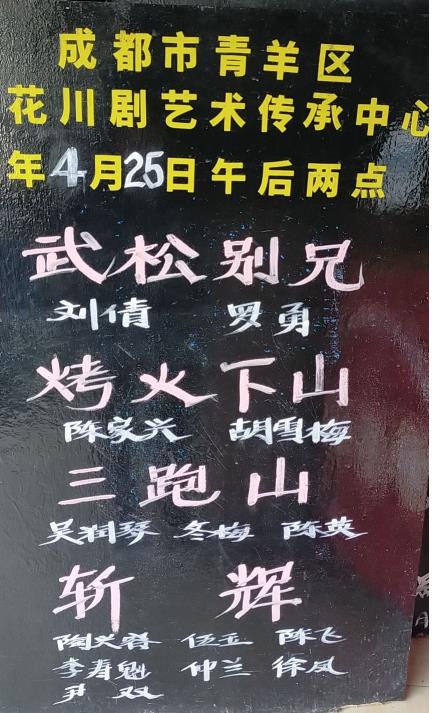 成都市青羊区
花川剧艺术传承中心
年4月25日午后两点
武松别兄
刘倩 罗勇
烤火下山
陈家兴 胡雪梅
三跑山
吴润琴 冬梅 陈英
斩辉
伍立 陈飞
李寿魁 仲兰 徐凤
尹双